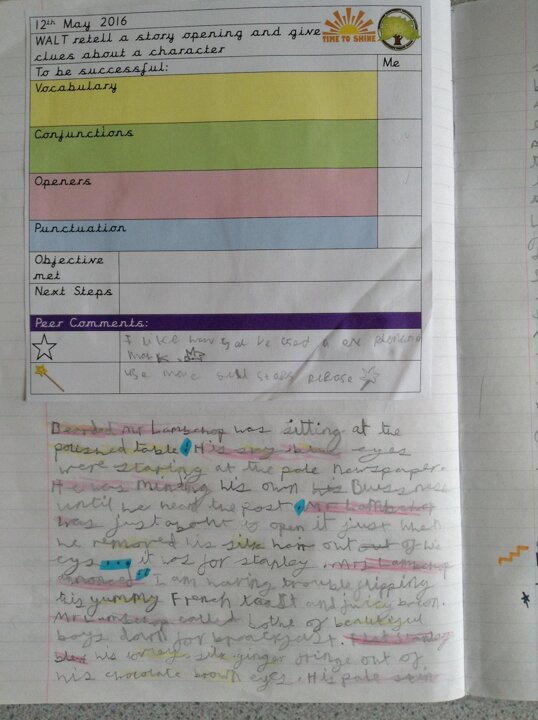 12th May 2016
WALT retell a story opening and give
clues about a character
TIME TO SHINE
To be successful:
Me
Vocabulary
Conjunctions
Openers
Punctuation
Objective
met
Next Steps
Peer Comments:
I like how you used a
mark
use more full stops please
Bearded Mr Lambchop was sitting at the
polished table! His sky blue eyes
were staring at the pale newspaper.
He was minding his own his Bussness
until he the post! Mr Lambchop
was just about to open it just when
he removed his silk hair out out of his
eys... it was for stapley. Mrs Lambchop
"I am having trouble flipping
this yummy French toast and juicy bacon.
Mr Lambchop called bothe of beautiful
boys down for breackfast.
his silk ginger fringe out of
his chocolate brown eyes. His pale skin